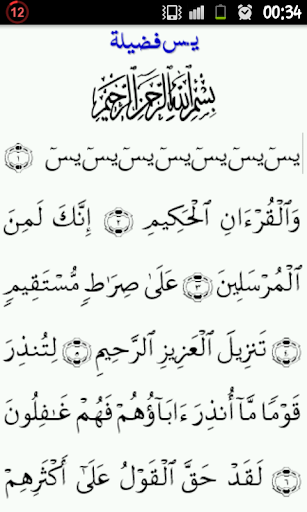 12 00:34
يـس فضيلة
بِسْمِ ٱللَّهِ ٱلرَّحْمَٰنِ ٱلرَّحِيمِ
يسٓ يسٓ يسٓ يسٓ يسٓ يسٓ يسٓ ١
وَٱلْقُرْءَانِ ٱلْحَكِيمِ ٢ إِنَّكَ لَمِنَ
ٱلْمُرْسَلِينَ ٣ عَلَىٰ صِرَٰطٍ مُّسْتَقِيمٍ
٤ تَنزِيلَ ٱلْعَزِيزِ ٱلرَّحِيمِ ٥ لِتُنذِرَ
قَوْمًا مَّآ أُنذِرَ ءَابَآؤُهُمْ فَهُمْ غَٰفِلُونَ
٦ لَقَدْ حَقَّ ٱلْقَوْلُ عَلَىٰٓ أَكْثَرِهِمْ